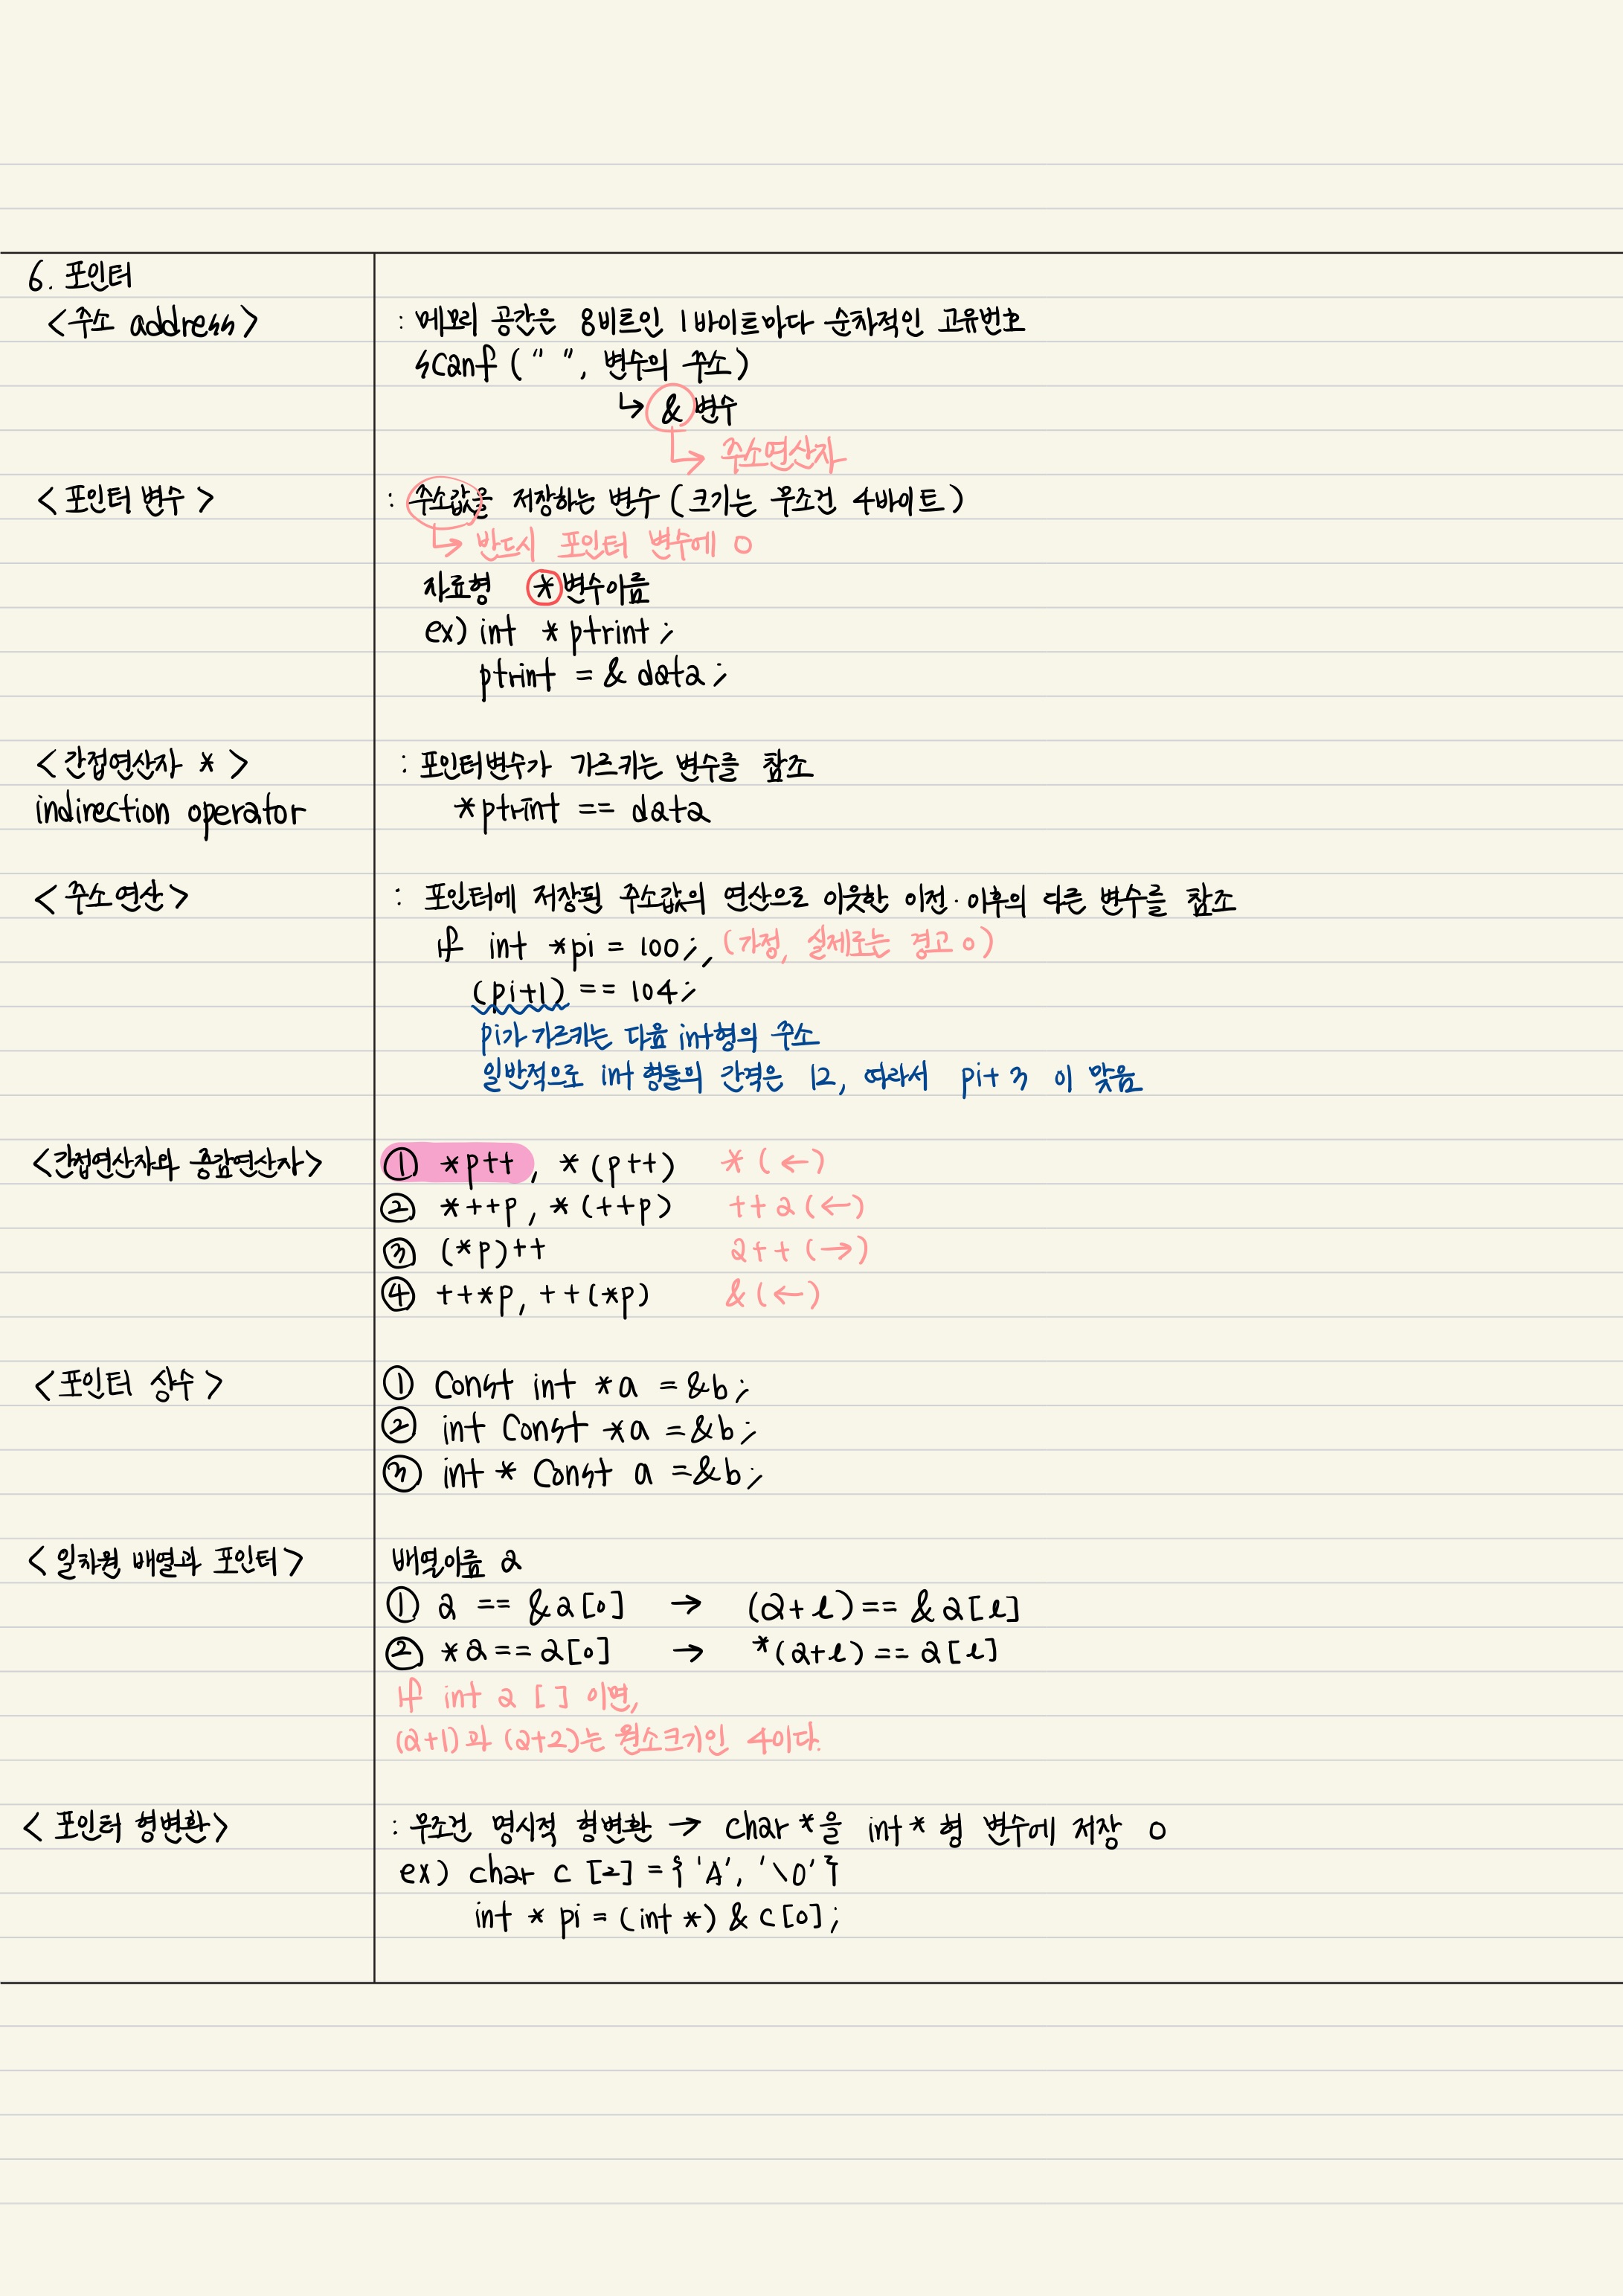 6. 포인터
<주소 address>
: 메모리 공간은 8비트인 1바이트마다 순차적인 고유번호
scanf (" ", 변수의 주소)
↳ & 변수
↳ 주소연산자
<포인터 변수>
: 주소값을 저장하는 변수 (크기는 무조건 4바이트)
↳ 반드시 포인터 변수에 O
자료형 *변수이름
ex) int *ptrint;
ptrint = & data;
<간접연산자 *>
: 포인터변수가 가르키는 변수를 참조
indirection operator
*ptrint == data
<주소 연산>
: 포인터에 저장된 주소값의 연산으로 이웃한 이전·이후의 다른 변수를 참조
if int *pi = 100;, (가정, 실제로는 경고 O)
(pi+1) == 104;
pi가 가르키는 다음 int형의 주소
일반적으로 int 형들의 간격은 12, 따라서 pi+3 이 맞음
<간접연산자와 증감연산자>
① *p++, *(p++) * (←)
② *++p, *(++p) ++a (←)
③ (*p)++ a++ (→)
④ ++*p, ++(*p) & (←)
<포인터 상수>
① Const int *a = &b;
② int Const *a = &b;
③ int * Const a = &b;
<일차원 배열과 포인터>
배열이름 a
① a == &a[0] → (a+l) == &a[l]
② *a == a[0] → *(a+l) == a[l]
if int a [] 이면,
(a+1)과 (a+2)는 원소크기인 4이다.
<포인터 형변환>
: 무조건 명시적 형변환 → char *을 int * 형 변수에 저장 O
ex) char c [2] = {'A', '\0'}
int * pi = (int *) & c[0];